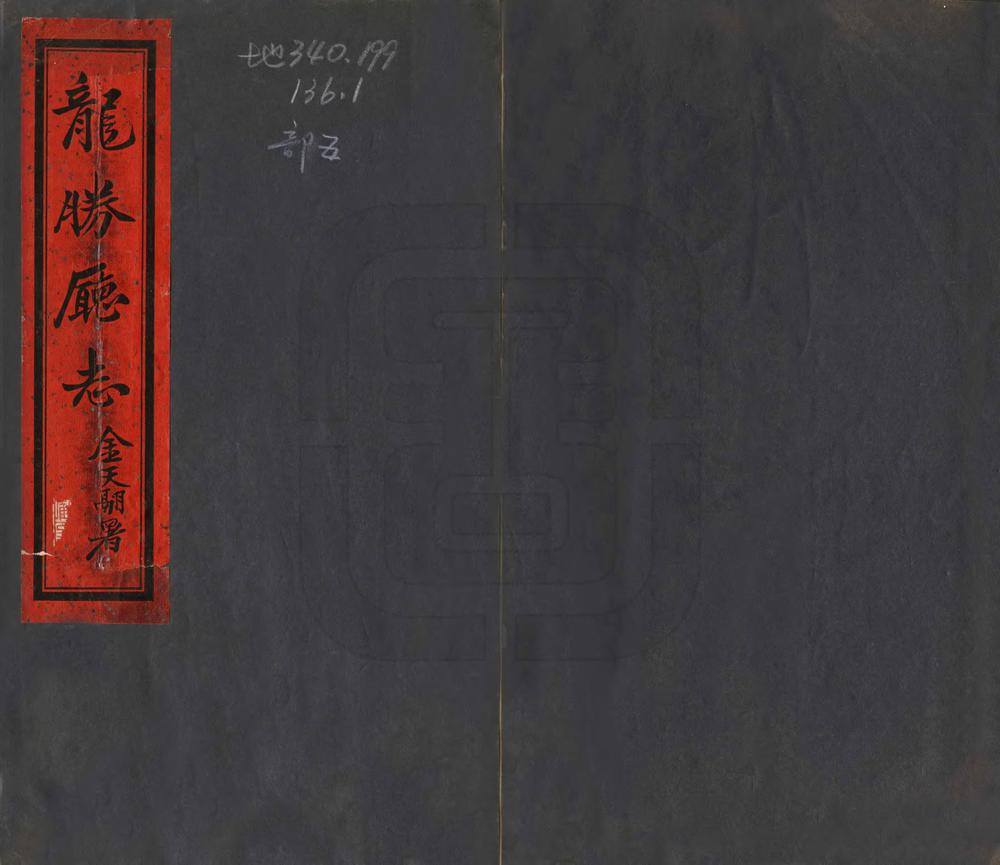 龍勝廳志
金天翮署
地340.199
136.1
部五